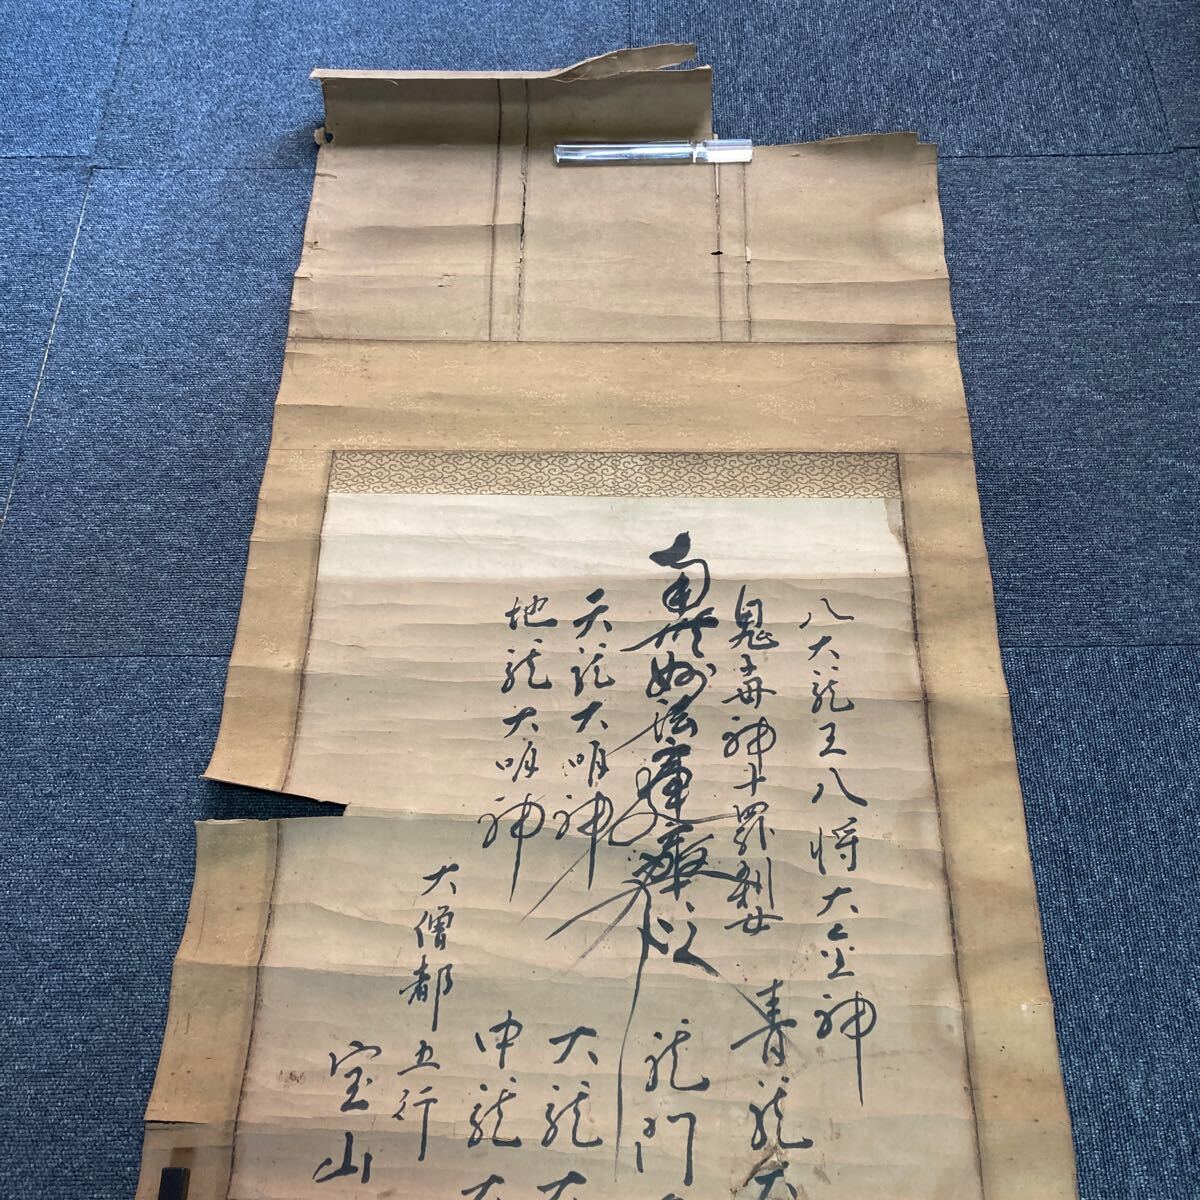 八大龍王八将大金神
鬼子母神十羅刹女 青龍大
南無妙法蓮華経 龍門
天龍大明神 大龍大
地龍大明神 中龍大
大僧都 五行
宝山